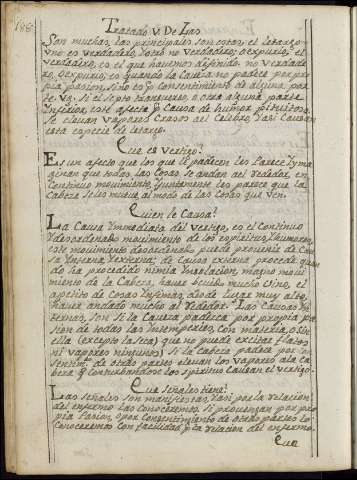 188
Tratado V. De Las
Son muchas, las principales son estas, el letargo
no es verdadero, y otro no verdadero, o expurio; el
verdadero, es el que havemos definido, no verdade
ro, o expurio; es quando la caveza no padece por pro
pia pasion, sino es p.r consentimiento de alguna par
te v.g. si el septo transverso, o otra alguna parte
inferior, esté afecta p.r causa de humor pituitoso
se elevan vapores crasos al celebro, y asi causan
esta especie de letargo.
Que es vertigo?
Es un afecto que los que le padecen les parece, y ma
ginan que todas las cosas se andan al rededor, en
continuo movimiento, y juntamente les parece que la
cabeza se les mueve, al modo de las cosas que ven.
Quien le Causa?
La Causa ymmediata del vertigo, es el continuo
y desordenado movimiento de los espiritus, y humores,
este movimiento desordenado puede provenir de Cau
sa ynterna, y externa; de causa externa procede quan
do ha precedido nimia ynsolacion, magno movi
miento de la Cabeza, haver bevido mucho vino, el
aspecto de cosas ynfimas, desde lugar muy alto,
haver andado mucho al rededor. Las Causas yn
ternas, son si la Caveza padece por propia pa
sion de todas las yntemperies, con materia, o sin
ella (excepto la seca) que no puede excitar flatos
ni vapores ningunos) si la Cabeza padece por con
sentim.to de otras partes elevan los vapores a la Ca
beza, y conturbandose los spiritus causan el vertigo.
Que señales tiene?
Las señales son manifiestas, y asi por la relacion
del enfermo las conoceremos si provengan por pro
pia Pasion, o por consentimiento de otras partes lo
conoceremos con facilidad p.r la relacion del enfermo.
Que